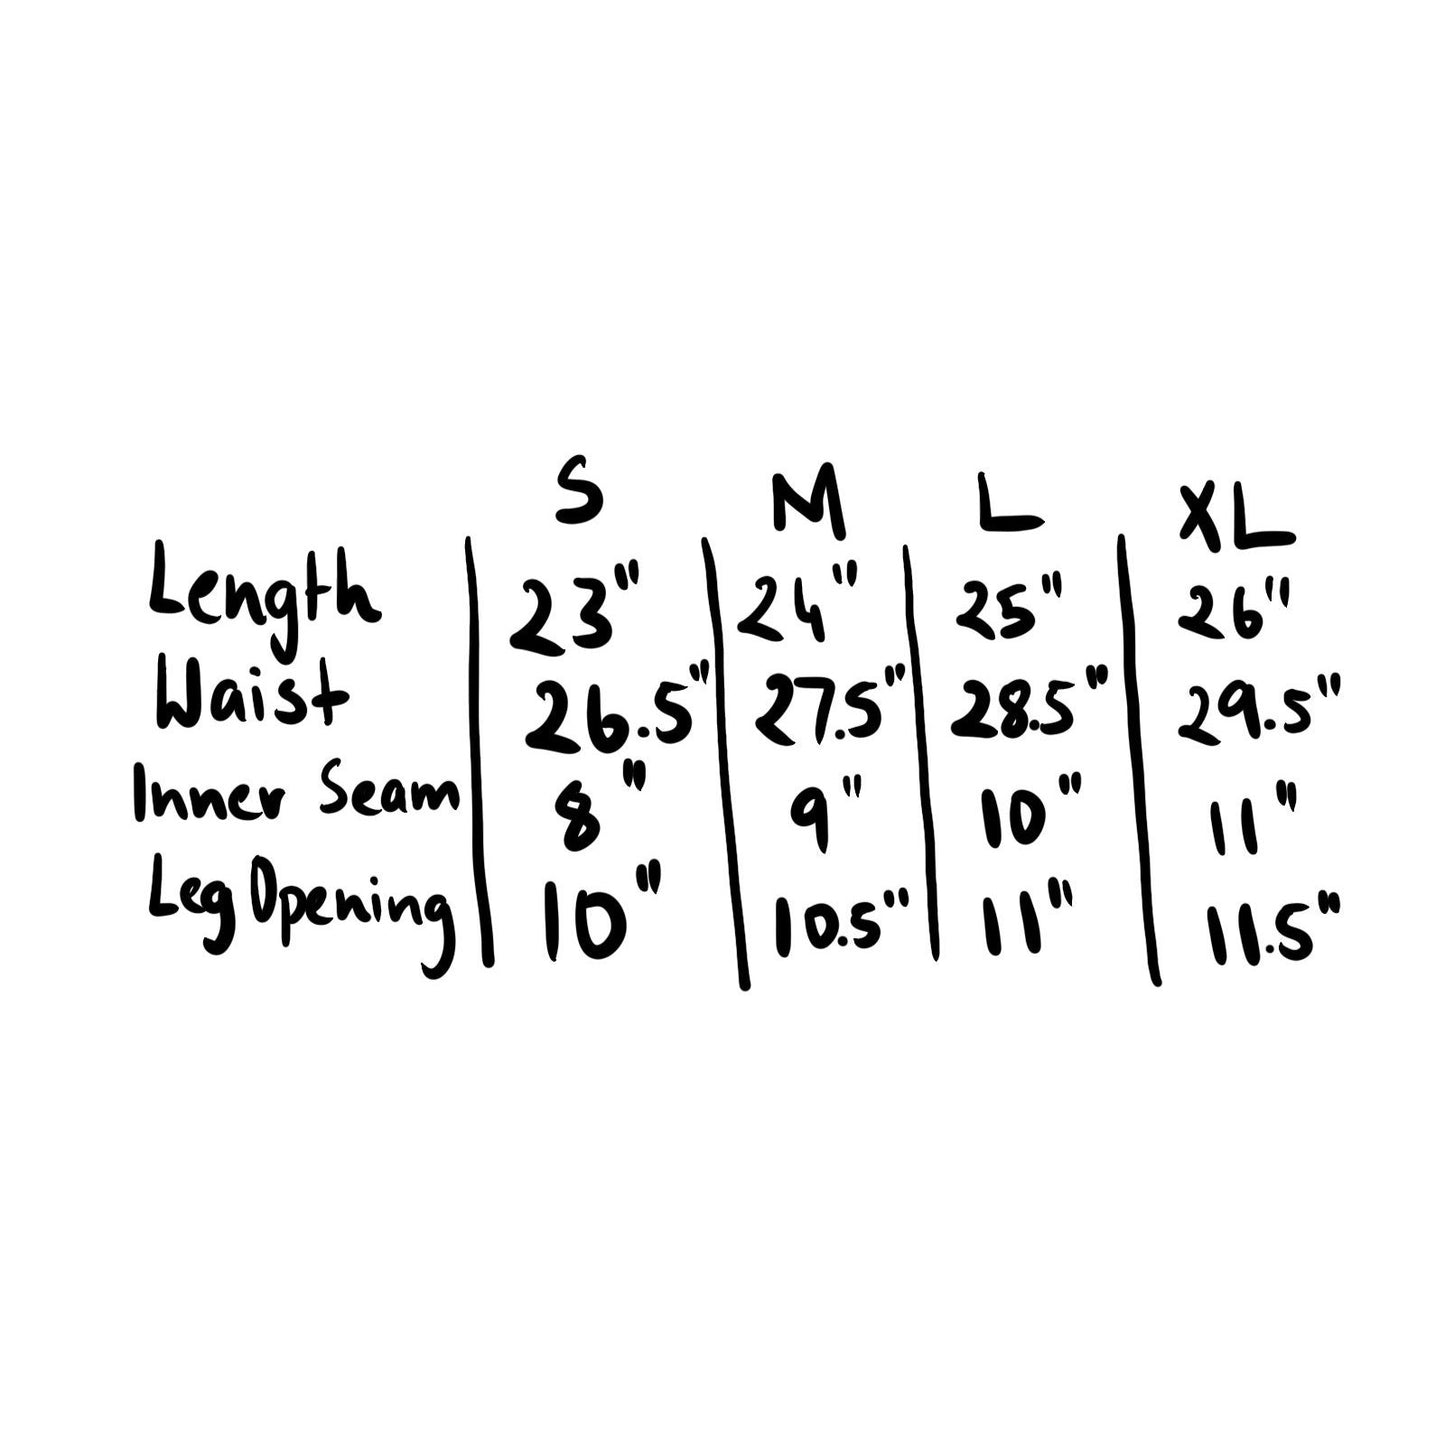 S M L XL
Length 23" 24" 25" 26"
Waist 26.5" 27.5" 28.5" 29.5"
Inner Seam 8" 9" 10" 11"
Leg Opening 10" 10.5" 11" 11.5"